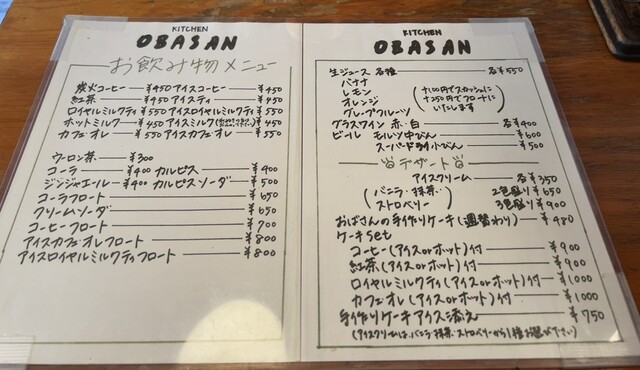 KITCHEN
OBASAN
お飲み物メニュー
炭火コーヒー ¥450 アイスコーヒー ¥450
紅茶 ¥450 アイスティ ¥450
ロイヤルミルクティ ¥550 アイスロイヤルミルクティ ¥550
ホットミルク ¥450 アイスミルク ¥450
カフェオレ ¥550 アイスカフェオレ ¥550
ウーロン茶 ¥300
コーラ ¥400 カルピス ¥400
ジンジャエール ¥400 カルピスソーダ ¥500
コーラフロート ¥650
クリームソーダ ¥650
コーヒーフロート ¥700
アイスカフェオレフロート ¥800
アイスロイヤルミルクティフロート ¥800
KITCHEN
OBASAN
生ジュース 各種 各¥550
バナナ
レモン
オレンジ
グレープフルーツ
+¥100円でスカッシュに
+¥250円でフロートに
いたします
グラスワイン 赤・白 各¥400
ビール モルツ中びん ¥600
スーパードライ小びん ¥500
デザート
アイスクリーム 各¥350
(バニラ・抹茶・ストロベリー)
2色盛り ¥650
3色盛り ¥900
おばさんの手作りケーキ(週替わり) ¥480
ケーキset
コーヒー(アイスorホット)付 ¥900
紅茶(アイスorホット)付 ¥900
ロイヤルミルクティ(アイスorホット)付 ¥1000
カフェオレ(アイスorホット)付 ¥1000
手作りケーキアイス添え ¥750
(アイスクリームは、バニラ・抹茶・ストロベリーから1種お選び下さい)